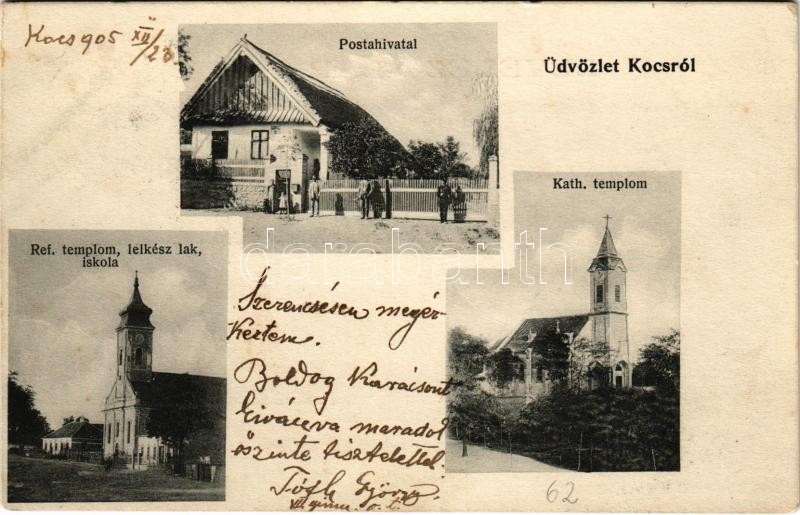 Kocs 905 XII/23
Postahivatal
Üdvözlet Kocsról
Kath. templom
Ref. templom, lelkész lak,
iskola
darabanth.com
Szerencsésen megér-
keztem.
Boldog Karácsont
kivánva maradok
őszinte tisztelettel
Tóth György
62